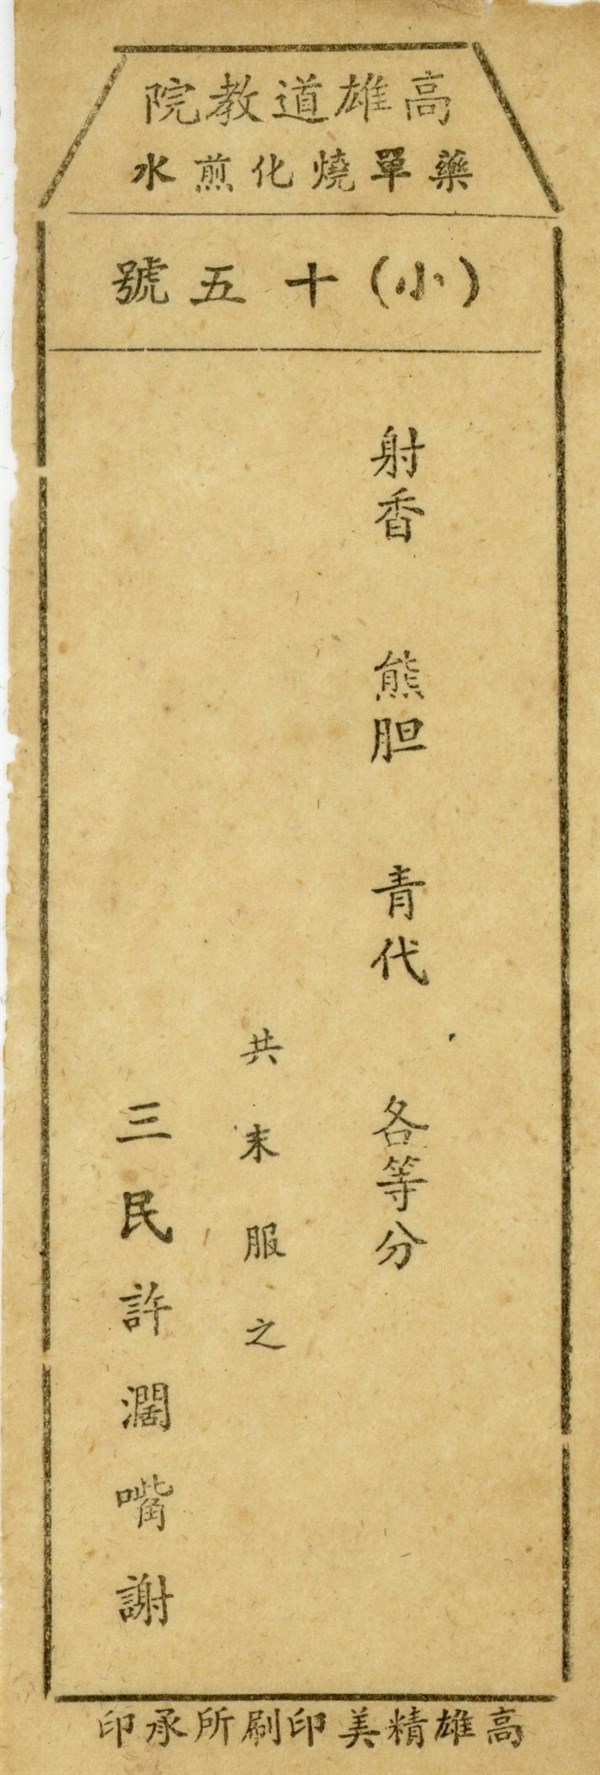 高雄道教院
藥單燒化煎水
(小)十五號
射香 熊胆 青代 各等分
共末服之
三民許濶嘴謝
高雄精美印刷所承印